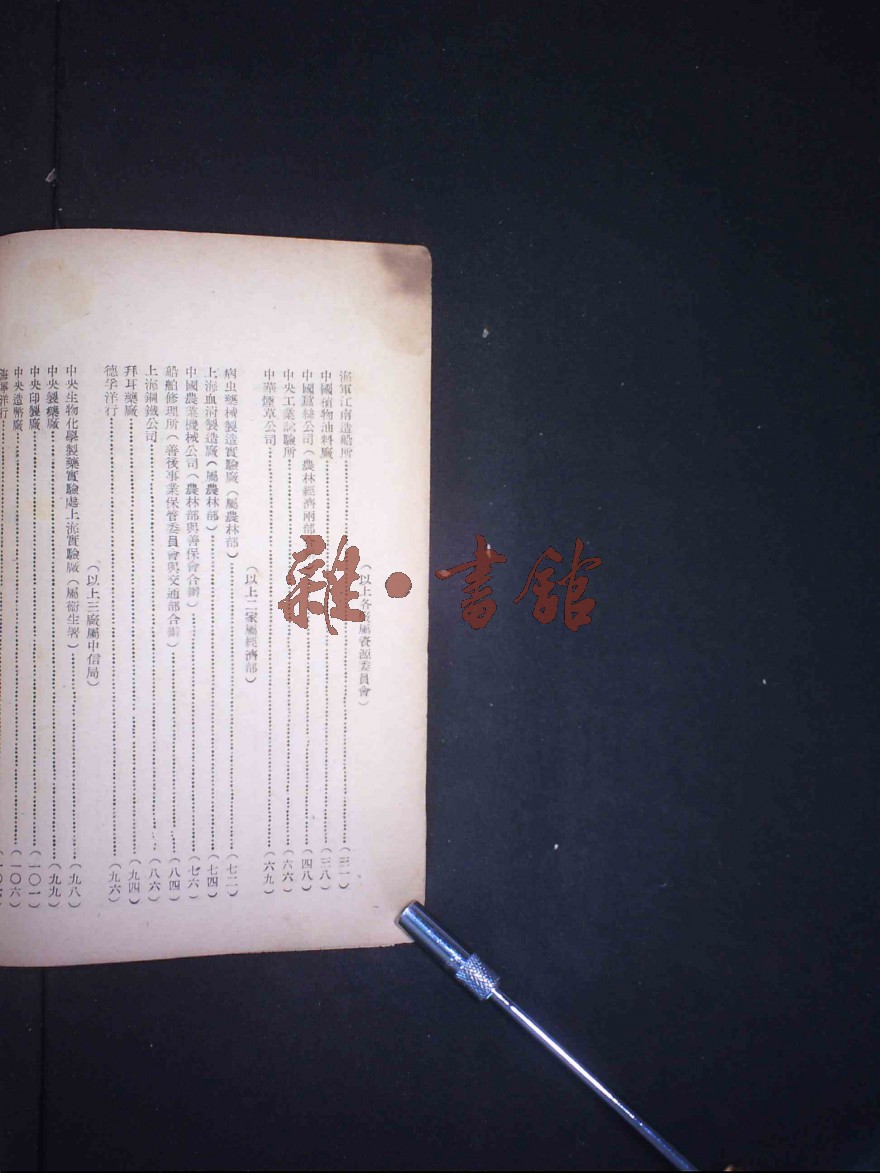 （以上各廠屬資源委員會）
海軍江南造船所（三一）
中國植物油料廠（三八）
中國蠶絲公司（農林經濟兩部（四八）
中央工業試驗所（六六）
中華煙草公司（六九）
（以上二家屬經濟部）
病虫藥械製造實驗廠（屬農林部）（七二）
上海血清製造廠（屬農林部）（七四）
中國農業機械公司（農林部與善保會合辦）（七六）
船舶修理所（善後事業保管委員會與交通部合辦）（八四）
上海鋼鐵公司（八六）
拜耳藥廠（九四）
德孚洋行（九六）
（以上三廠屬中信局）
中央生物化學製藥實驗處上海實驗廠（屬衞生署）（九八）
中央製藥廠（九九）
中央印製廠（一〇一）
中央造幣廠（一〇六）
雜·書館